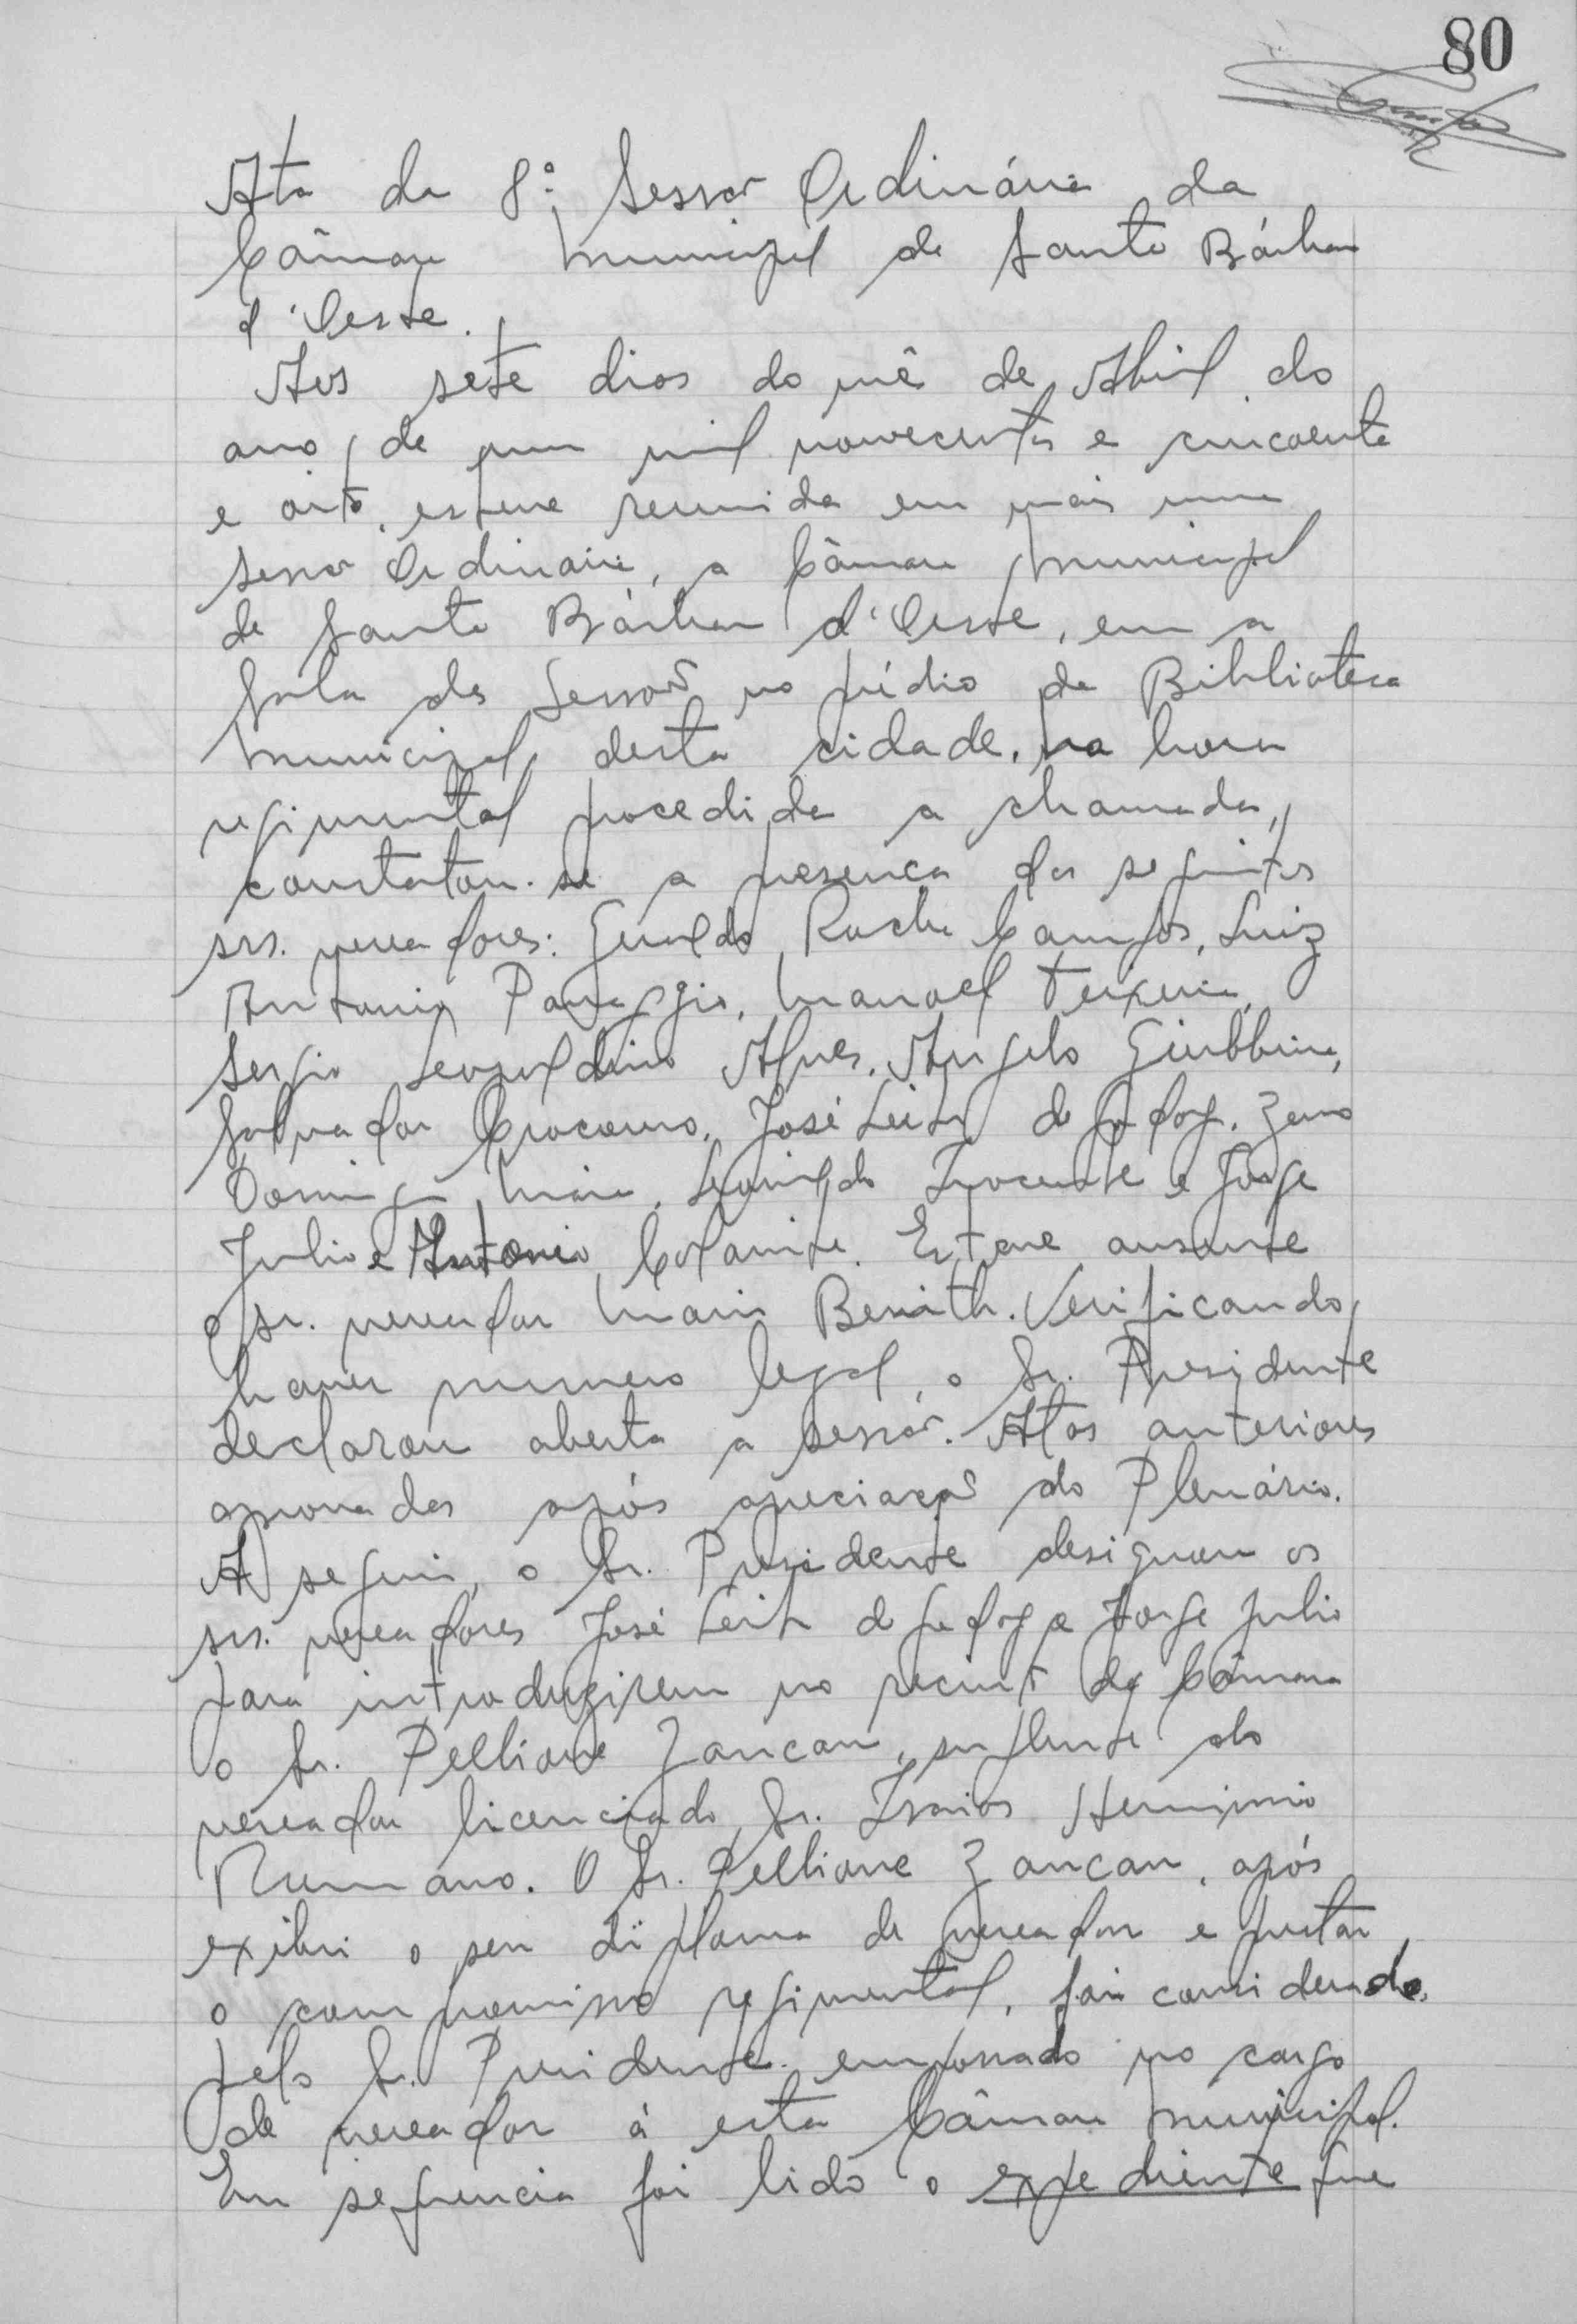 80
Ata da 8ª Sessão Ordinária da
Câmara Municipal de Santa Bárbara
d'Oeste.
Aos sete dias do mê de Abril do
ano de um mil novecentos e cincoenta
e oito, esteve reunida em mais uma
sessão Ordinária, a Câmara Municipal
de Santa Bárbara d'Oeste, em a
Sala das Sessões no prédio da Biblioteca
Municipal desta cidade. Na hora
regimental procedida a chamada,
constatou-se a presença dos seguintes
srs. vereadores: Geraldo Rocha Campos, Luiz
Antonio Panaggio, Manoel Teixeira,
Sergio Leopoldino Alves, Angelo Giubbina,
Salvador Crocomo, José Leite de Godoy, Zeno
Domingos Maia, Leonildo Inocente e Jorge
Julio e Antonio. Esteve ausente
o sr. vereador Mario Benith. Verificando
haver numero legal, o Sr. Presidente
declarou aberta a sessão. Atas anteriores
aprovadas após apreciação do Plenário.
A seguir, o Sr. Presidente designou os
srs. vereadores José Leite de Godoy e Jorge Julio
para introduzirem no recinto da Câmara
o Sr. Pelliane Zancan, suplente do
vereador licenciado Sr. Isaias Herminio
Rumano. O Sr. Pelliane Zancan, após
exibir o seu diploma de vereador e prestar
o compromisso regimental, foi considerado,
pelo Sr. Presidente. empossado no cargo
de vereador à esta Câmara Municipal.
Em sequencia foi lido o expediente que